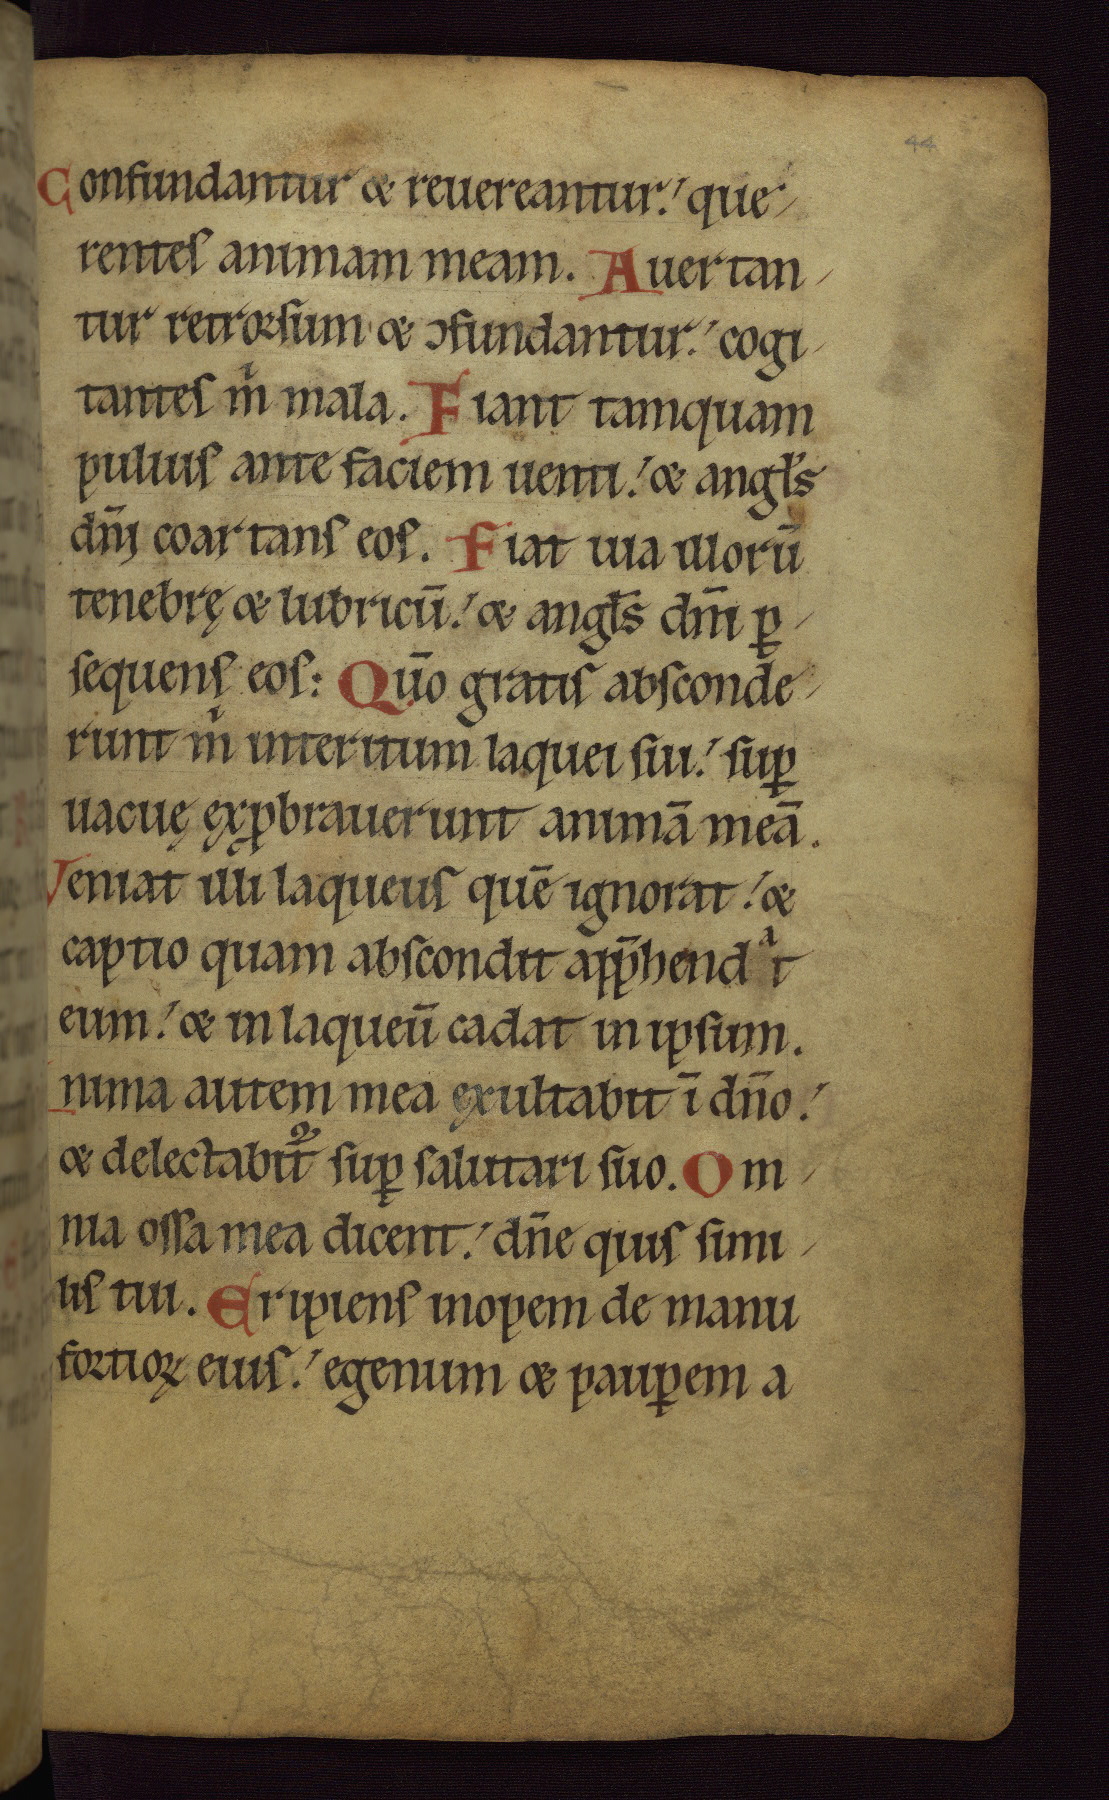 44
Confundantur & reuereantur: que
rentes animam meam. Auertan
tur retrorsum & ɔfundantur: cogi
tantes m̄ mala. Fiant tamquam
puluis ante faciem uenti: & angl̄s
dn̄i coartans eos. Fiat uia illorū
tenebrę & lubricū: & angl̄s dn̄i ꝑ
sequens eos: Qūo gratis absconde
runt m̄ interitum laquei sui: suꝑ
uacuę exꝓbrauerunt animā meā.
Veniat illi laqueus quē ignorat: &
captio quam abscondit app̄hendᵃt
eum: & in laqueū cadat in ipsum.
nima autem mea exultabit ī dn̄o:
& delectabit᷑ suꝑ salutari suo. Om
nia ossa mea dicent: dn̄e quis simi
lis tui. Eripiens inopem de manu
fortioꝝ eius: egenum & pauꝑem a